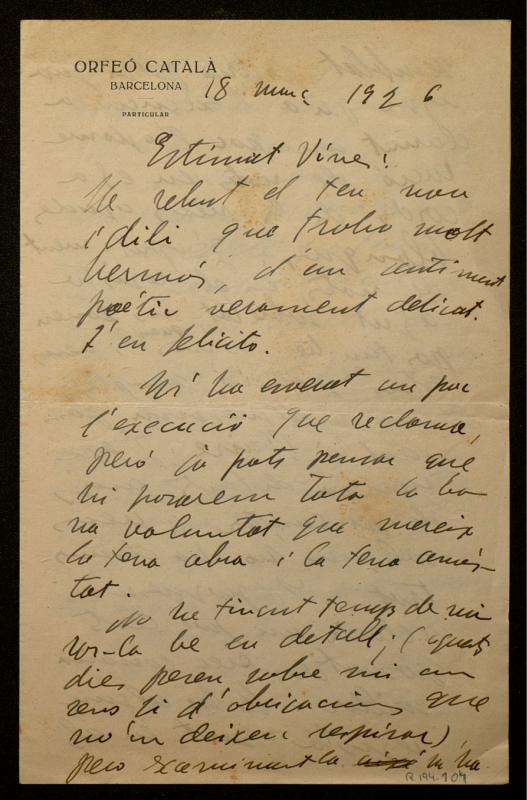 ORFEÓ CATALÀ
BARCELONA
PARTICULAR
18 març 1926
Estimat Vives:
He rebut el teu nou
idili que trobo molt
hermós, d'un sentiment
poétic verament delicat.
T'en felicito.
M'ha esverat un poc
l'execució que reclama,
peró ja pots pensar que
hi posarem tota la bo
na voluntat que mereix
la teva obra i la teva amis-
tat.
No he tingut temps de mi
rar-la be en detall; (aquets
dies pesen sobre mi un
sens fi d'obligacions que
no'm deixen respirar)
pero examinant la així m'ha
R 194-104